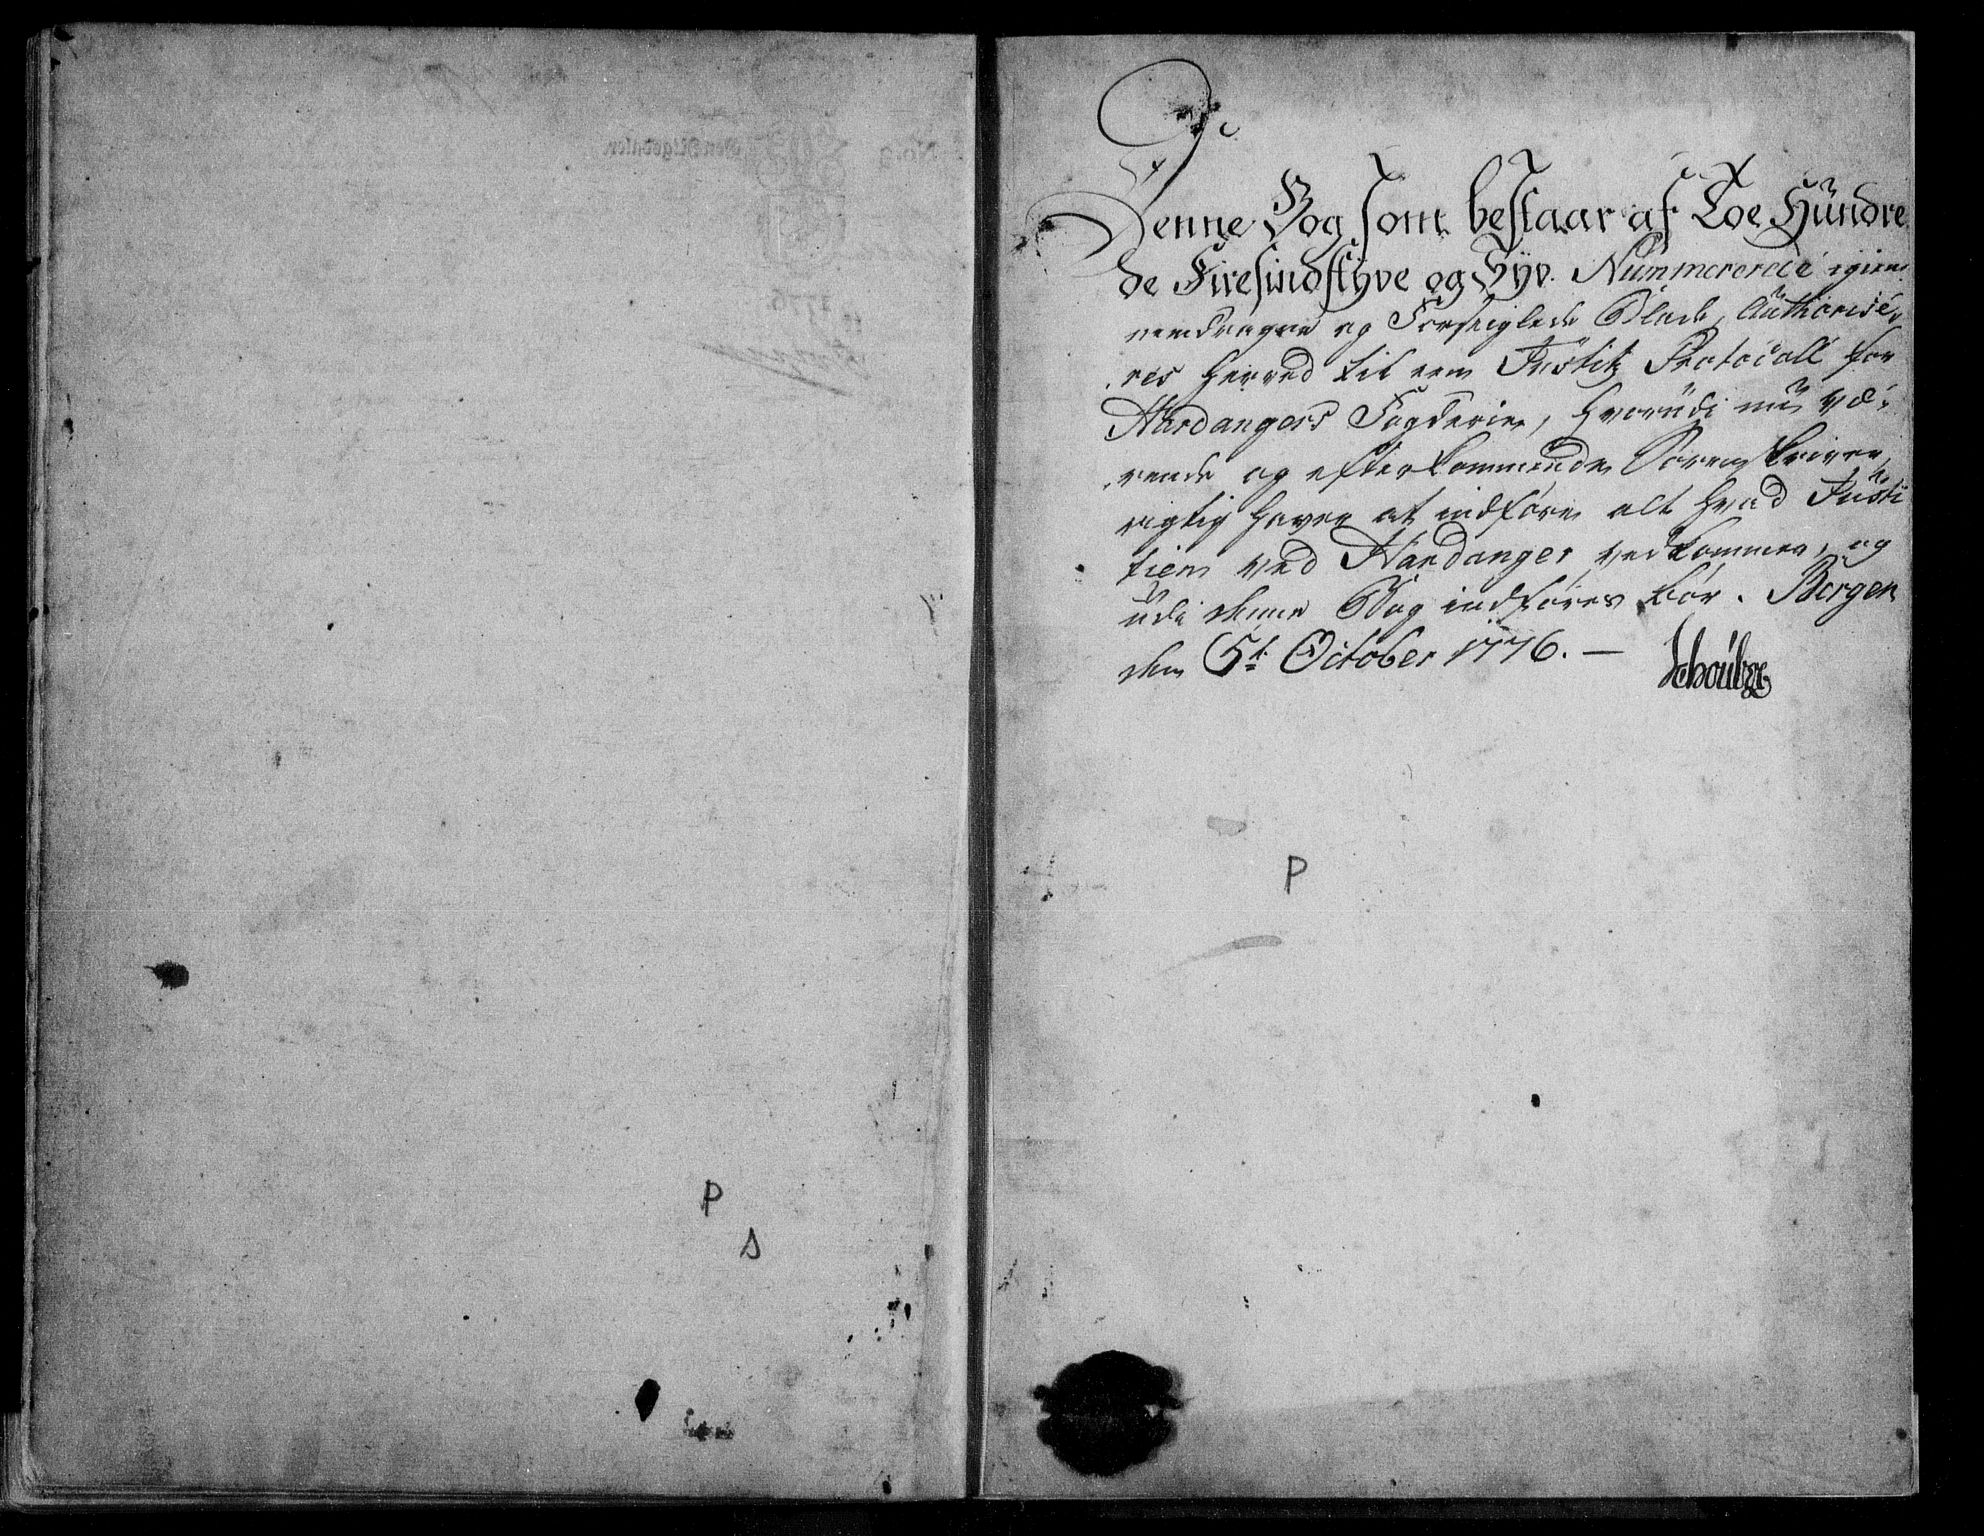 Denne Bog som bestaar af Toe Hundre
de Firesindstyve og Syv. Nummererede igien
nemdragne og Forseiglede Blade, Authorise,
res herved til een Justitz Protocoll for
Hardangers Fogderie, hvorudi nu væ,
rende og efterkommende Sorenskriver
rigtig haver at indføre alt hvad Justi
tien ved Hardanger vedkommer, og
udi denne Bog indføres bør. Bergen
den 5t October 1776. — Schouboe
P
P
s
No. 3
1776